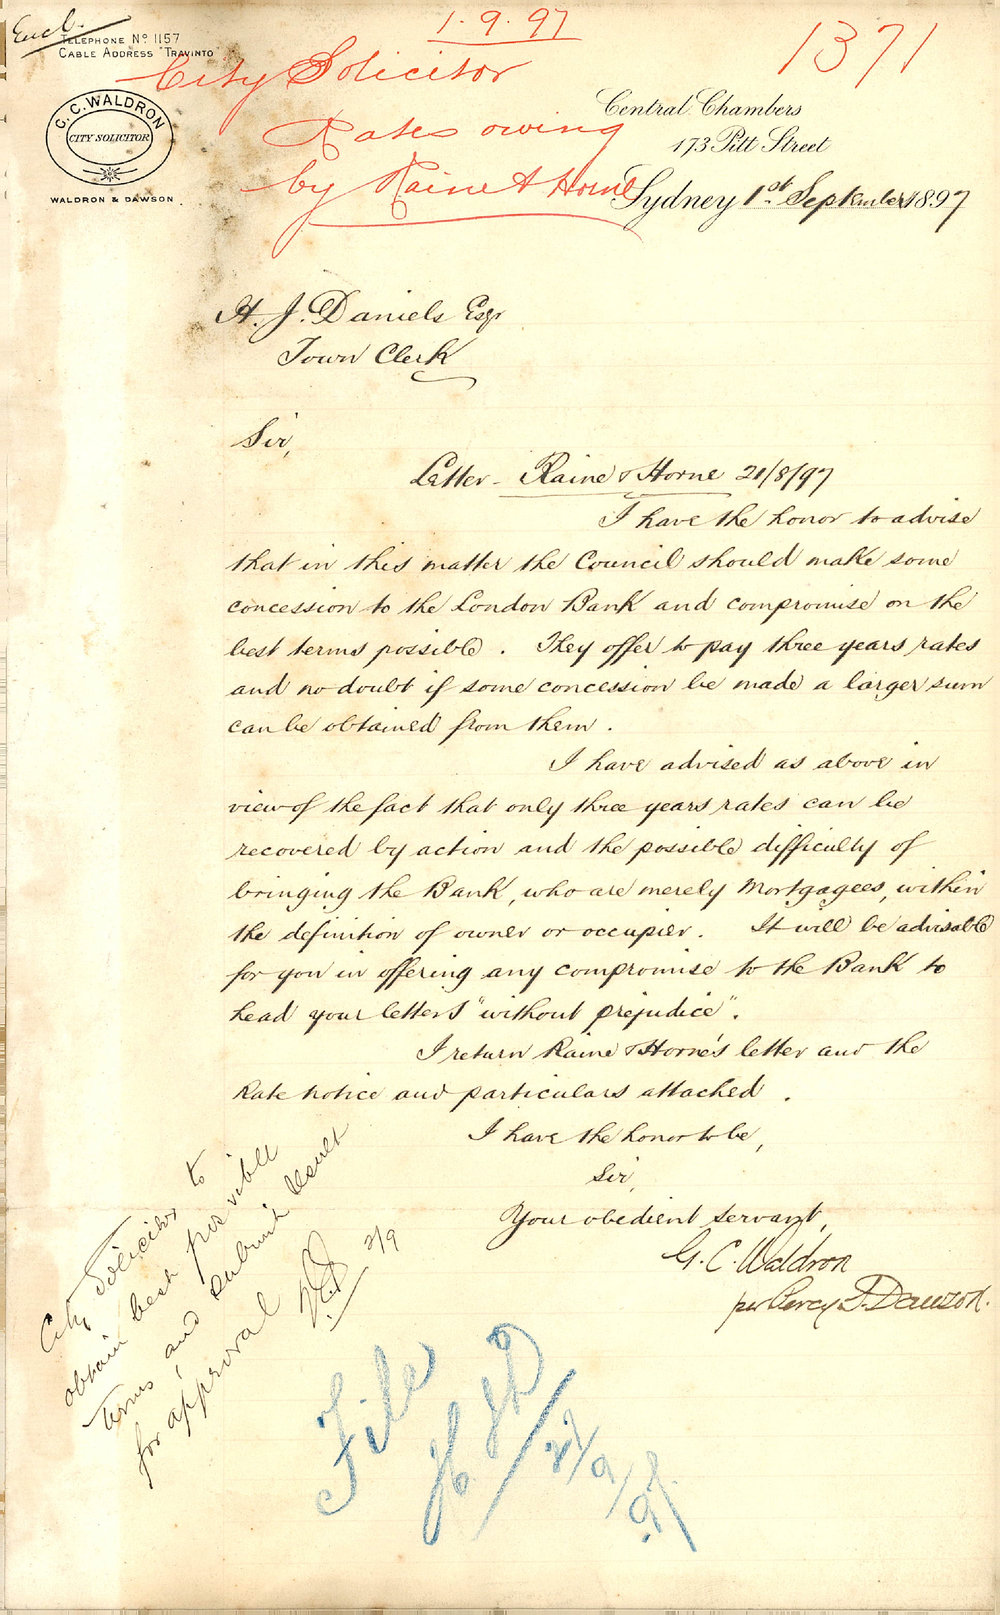 Encl.
TELEPHONE No 1157
CABLE ADDRESS "TRAVINTO"
1.9.97
1371
City Solicitor
Rates owing
by Raine & Horne
C. C. WALDRON
CITY SOLICITOR
WALDRON & DAWSON
Central Chambers
173 Pitt Street
Sydney 1st September 1897
H. J. Daniels Esqr
Town Clerk
Sir,
Letter - Raine & Horne 20/8/97
I have the honor to advise
that in this matter the Council should make some
concession to the London Bank and compromise on the
best terms possible. They offer to pay three years rates
and no doubt if some concession be made a larger sum
can be obtained from them.
I have advised as above in
view of the fact that only three years rates can be
recovered by action and the possible difficulty of
bringing the Bank, who are merely Mortgagees, within
the definition of owner or occupier. It will be advisable
for you in offering any compromise to the Bank to
head your letters "without prejudice".
I return Raine & Horne's letter and the
Rate notice and particulars attached.
I have the honor to be,
Sir,
Your obedient servant,
G. C. Waldron
per Percy J. Dawson.
City Solicitor to
obtain best possible
terms, and submit result
for approval
2/9
File